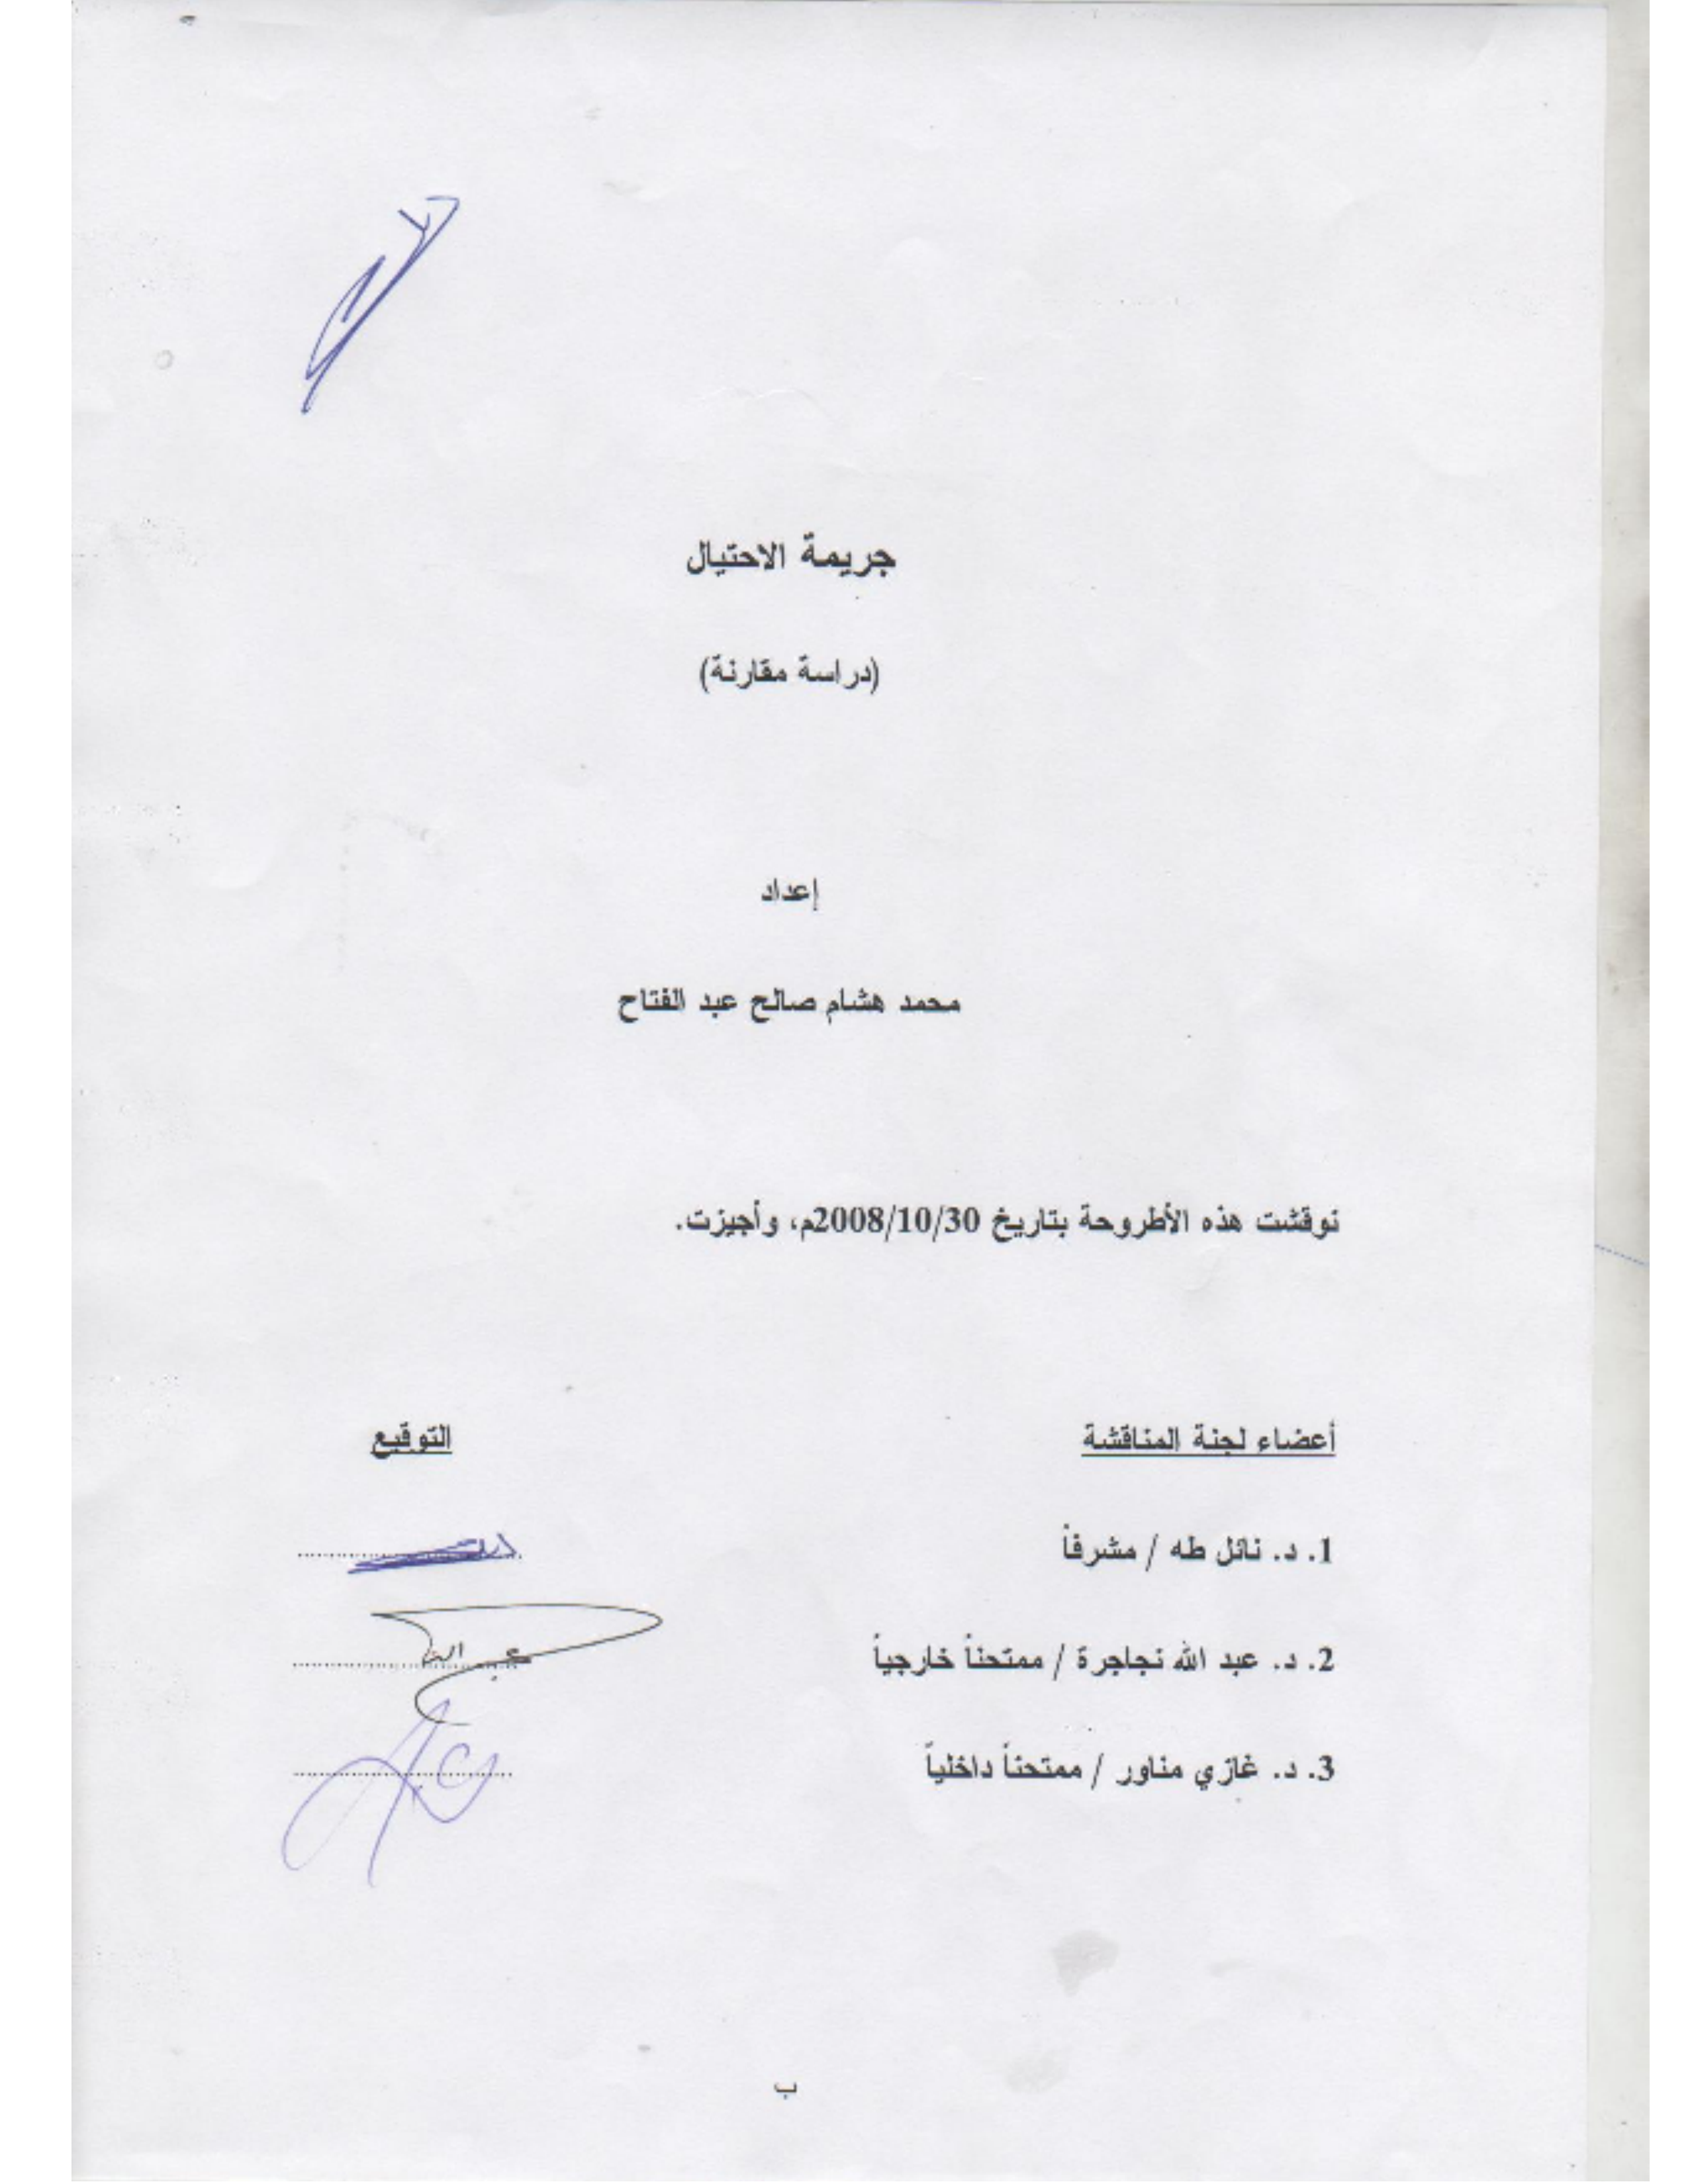 جريمة الاحتيال
(دراسة مقارنة)
إعداد
محمد هشام صالح عبد الفتاح
نوقشت هذه الأطروحة بتاريخ 2008/10/30م، وأجيزت.
أعضاء لجنة المناقشة التوقيع
1. د. نائل طه / مشرفاً
2. د. عبد الله نجاجرة / ممتحناً خارجياً
3. د. غازي مناور / ممتحناً داخلياً
ب